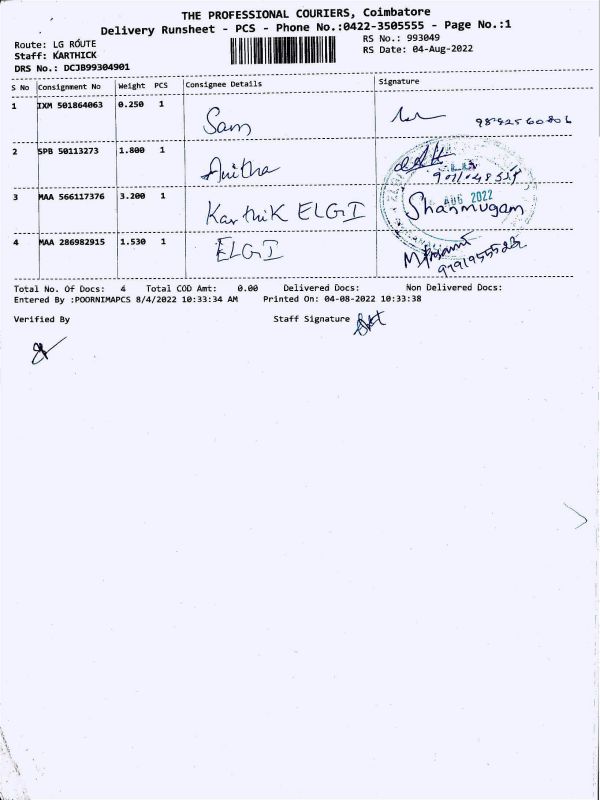 THE PROFESSIONAL COURIERS, Coimbatore
Delivery Runsheet - PCS - Phone No.:0422-3505555 - Page No.:1
Route: LG ROUTE
RS No.: 993049
Staff: KARTHICK
RS Date: 04-Aug-2022
DRS No.: DCJB99304901
S No Consignment No Weight PCS Consignee Details Signature
1 IXM 501864063 0.250 1 Sam
2 SPB 50113273 1.800 1 Anitha
3 MAA 566117376 3.200 1 Karthik ELGI AUG 2022 Shanmugam
4 MAA 286982915 1.530 1 ELGI
Total No. Of Docs: 4 Total COD Amt: 0.00 Delivered Docs: Non Delivered Docs:
Entered By :POORNIMAPCS 8/4/2022 10:33:34 AM Printed On: 04-08-2022 10:33:38
Verified By Staff Signature